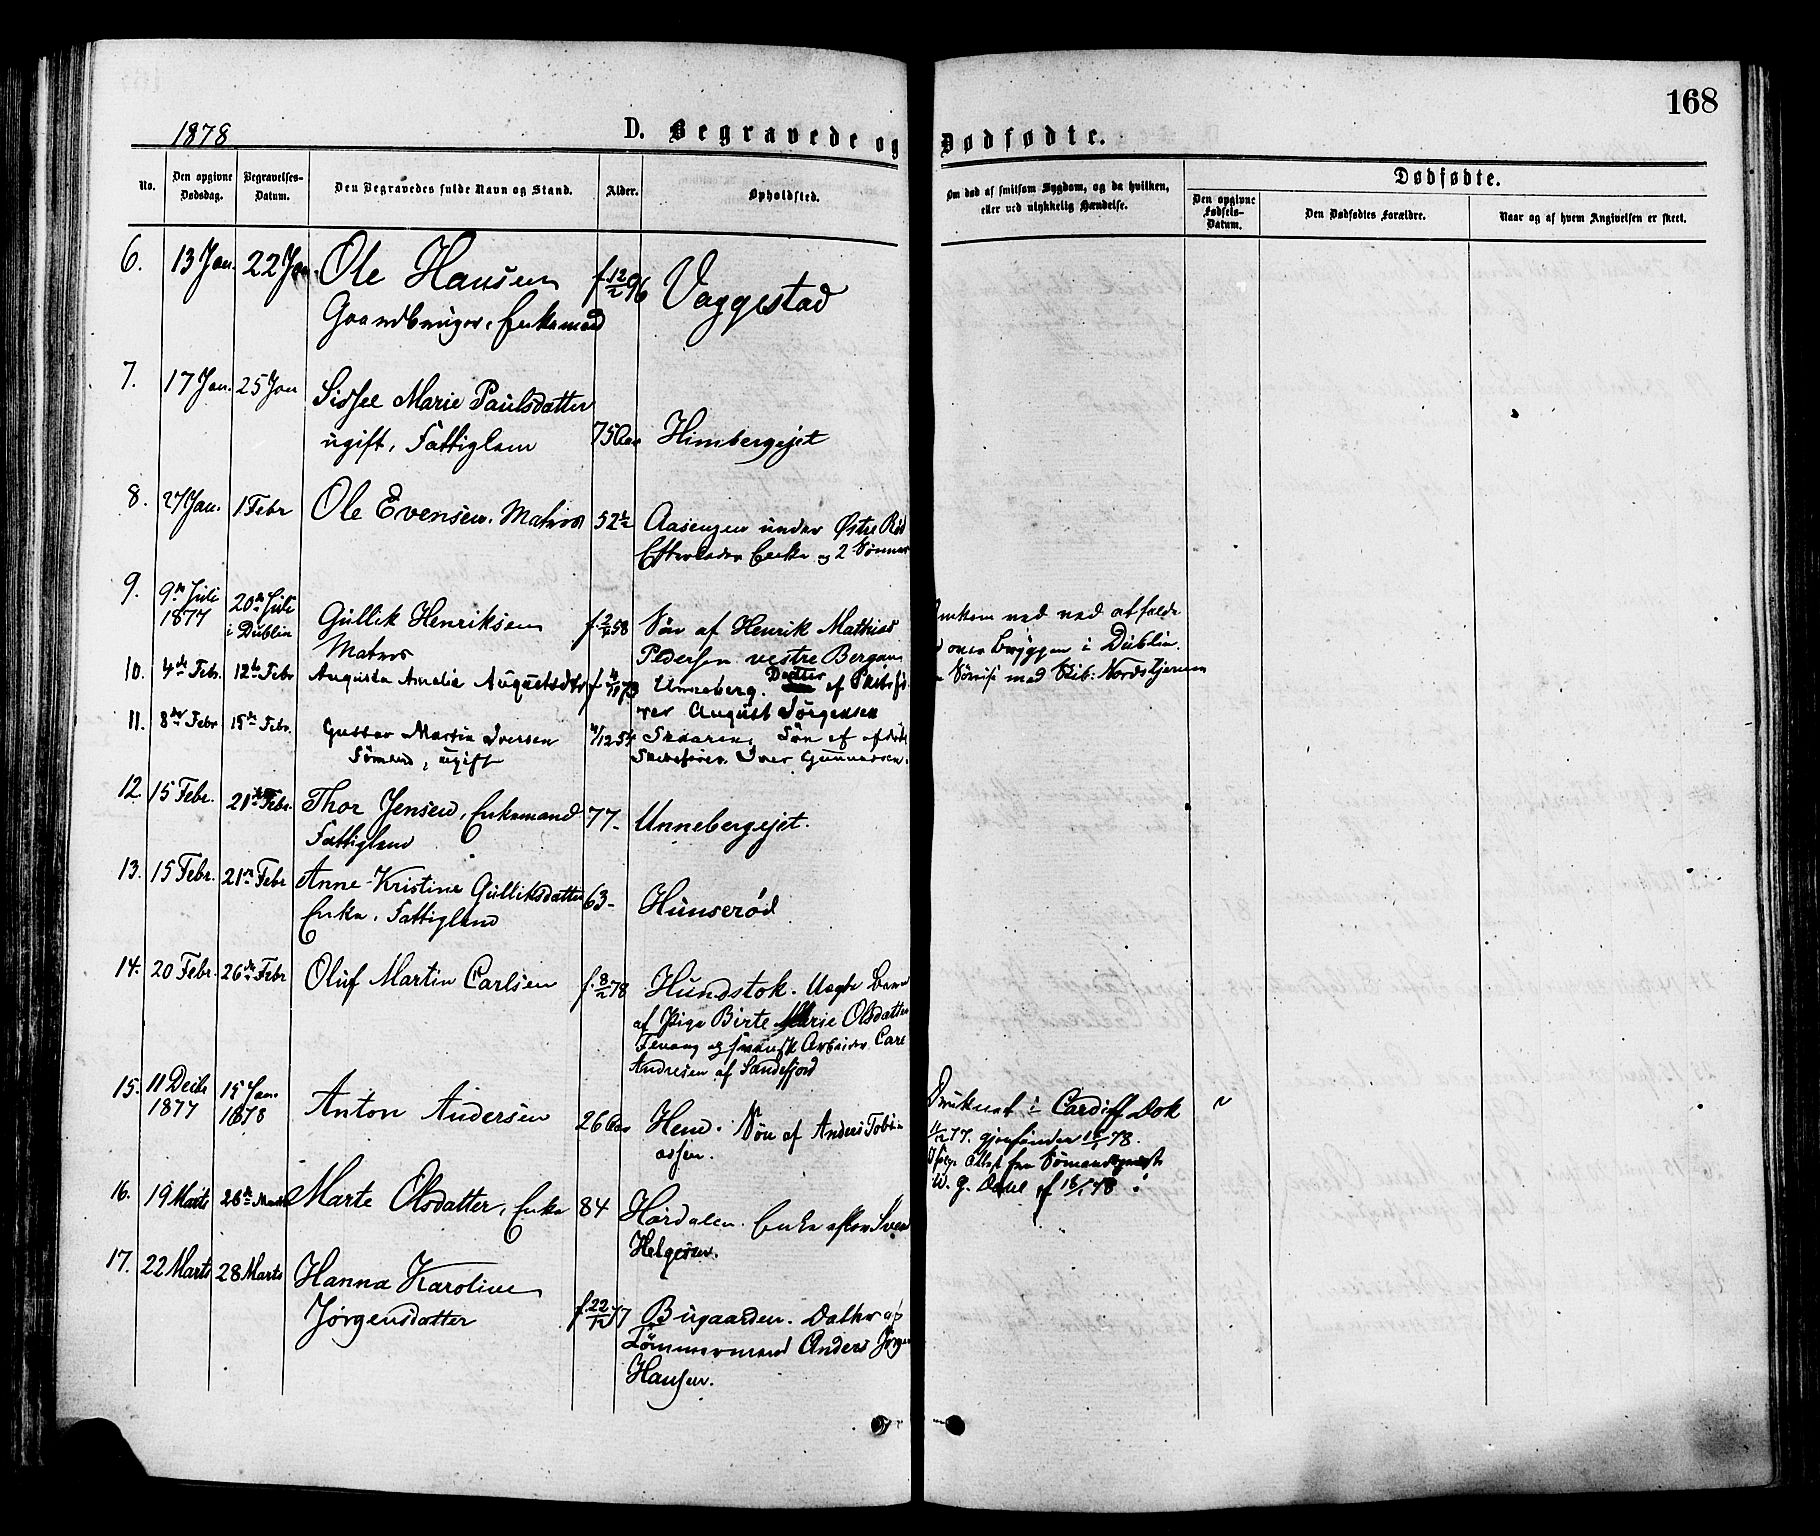 168
1878
D. Begravede og Dødfødte.
No.
Den opgivne Dødsdag.
Begravelses-Datum.
Den Begravedes fulde Navn og Stand.
Alder.
Opholdsted.
Om død af smitsom Sygdom, og da hvilken,
eller ved ulykkelig Hændelse.
Dødfødte.
Den opgivne Fødsels-Datum.
Den Dødfødtes Forældre.
Naar og af hvem Angivelsen er skeet.
6. 13 Jan. 22 Jan. Ole Hansen f. 12/2 96 Vaggestad
Gaardbruger, Enkemand
7. 17 Jan. 25 Jan Sissel Marie Paulsdatter
ugift, Fattiglem 75 Aar Himbergejet
8. 27 Jan. 1 Febr Ole Evensen, Matros 52 1/2 Aasengen under Østre Rød
Efterlader Enke og 2 Sønner
9. 9de Juli 1877 20de Juli i Dublin Gullik Henriksen f. 2/6 58 Søn af Henrik Mathias
Matros Pedersen vestre Bergan
Omkom ned ved at falde
over Bryggen i Dublin.
med Skib: Nordstjernen
10. 4de Febr. 12te Febr Augusta Amalie Augustsdtr f. 4/10 73 Unneberg. Datter af Skibsfø-
rer August Jørgensen
11. 8de Febr 15de Febr. Gustav Martin Iversen 4/12 54 Skaaren, Søn af afdøde
Sømand, ugift Skibsfører Iver Gunnarsen.
12. 15 Febr. 21de Febr. Thor Jensen, Enkemand 77- Unnebergejet.
Fattiglem
13. 15 Febr. 21de Febr Anne Kristine Gulliksdatter 63- Hunserød
Enke, Fattiglem
14. 20 Febr. 26de Febr Oluf Martin Carlsen f. 8/2 78 Hundstok. Uægte Barn
af Pige Birte Marie Olsdatter
Fevang og svensk Arbeider Carl
Andresen af Sandefjord
15. 11 Decbr 1877 15 Jan. 1878 Anton Andersen 26 Aar Hem. Søn af Anders Tobia
assen.
Druknet i Cardiff Dok
11/12 77. gjenfunden 15/1 78.
Ifølge Attest fra Sømandsprest
W. G. Dahl af 16/1 78.
16. 19 Marts 26de Marts Marte Olsdatter, Enke 84 Hørdalen. Enke efter Sven
Helgesen.
17. 22 Marts 28 Marts Hanna Karoline
Jørgensdatter f. 22/12 77 Bugaarden. Datter af
Tømmermand Anders Jørgen
Hansen.